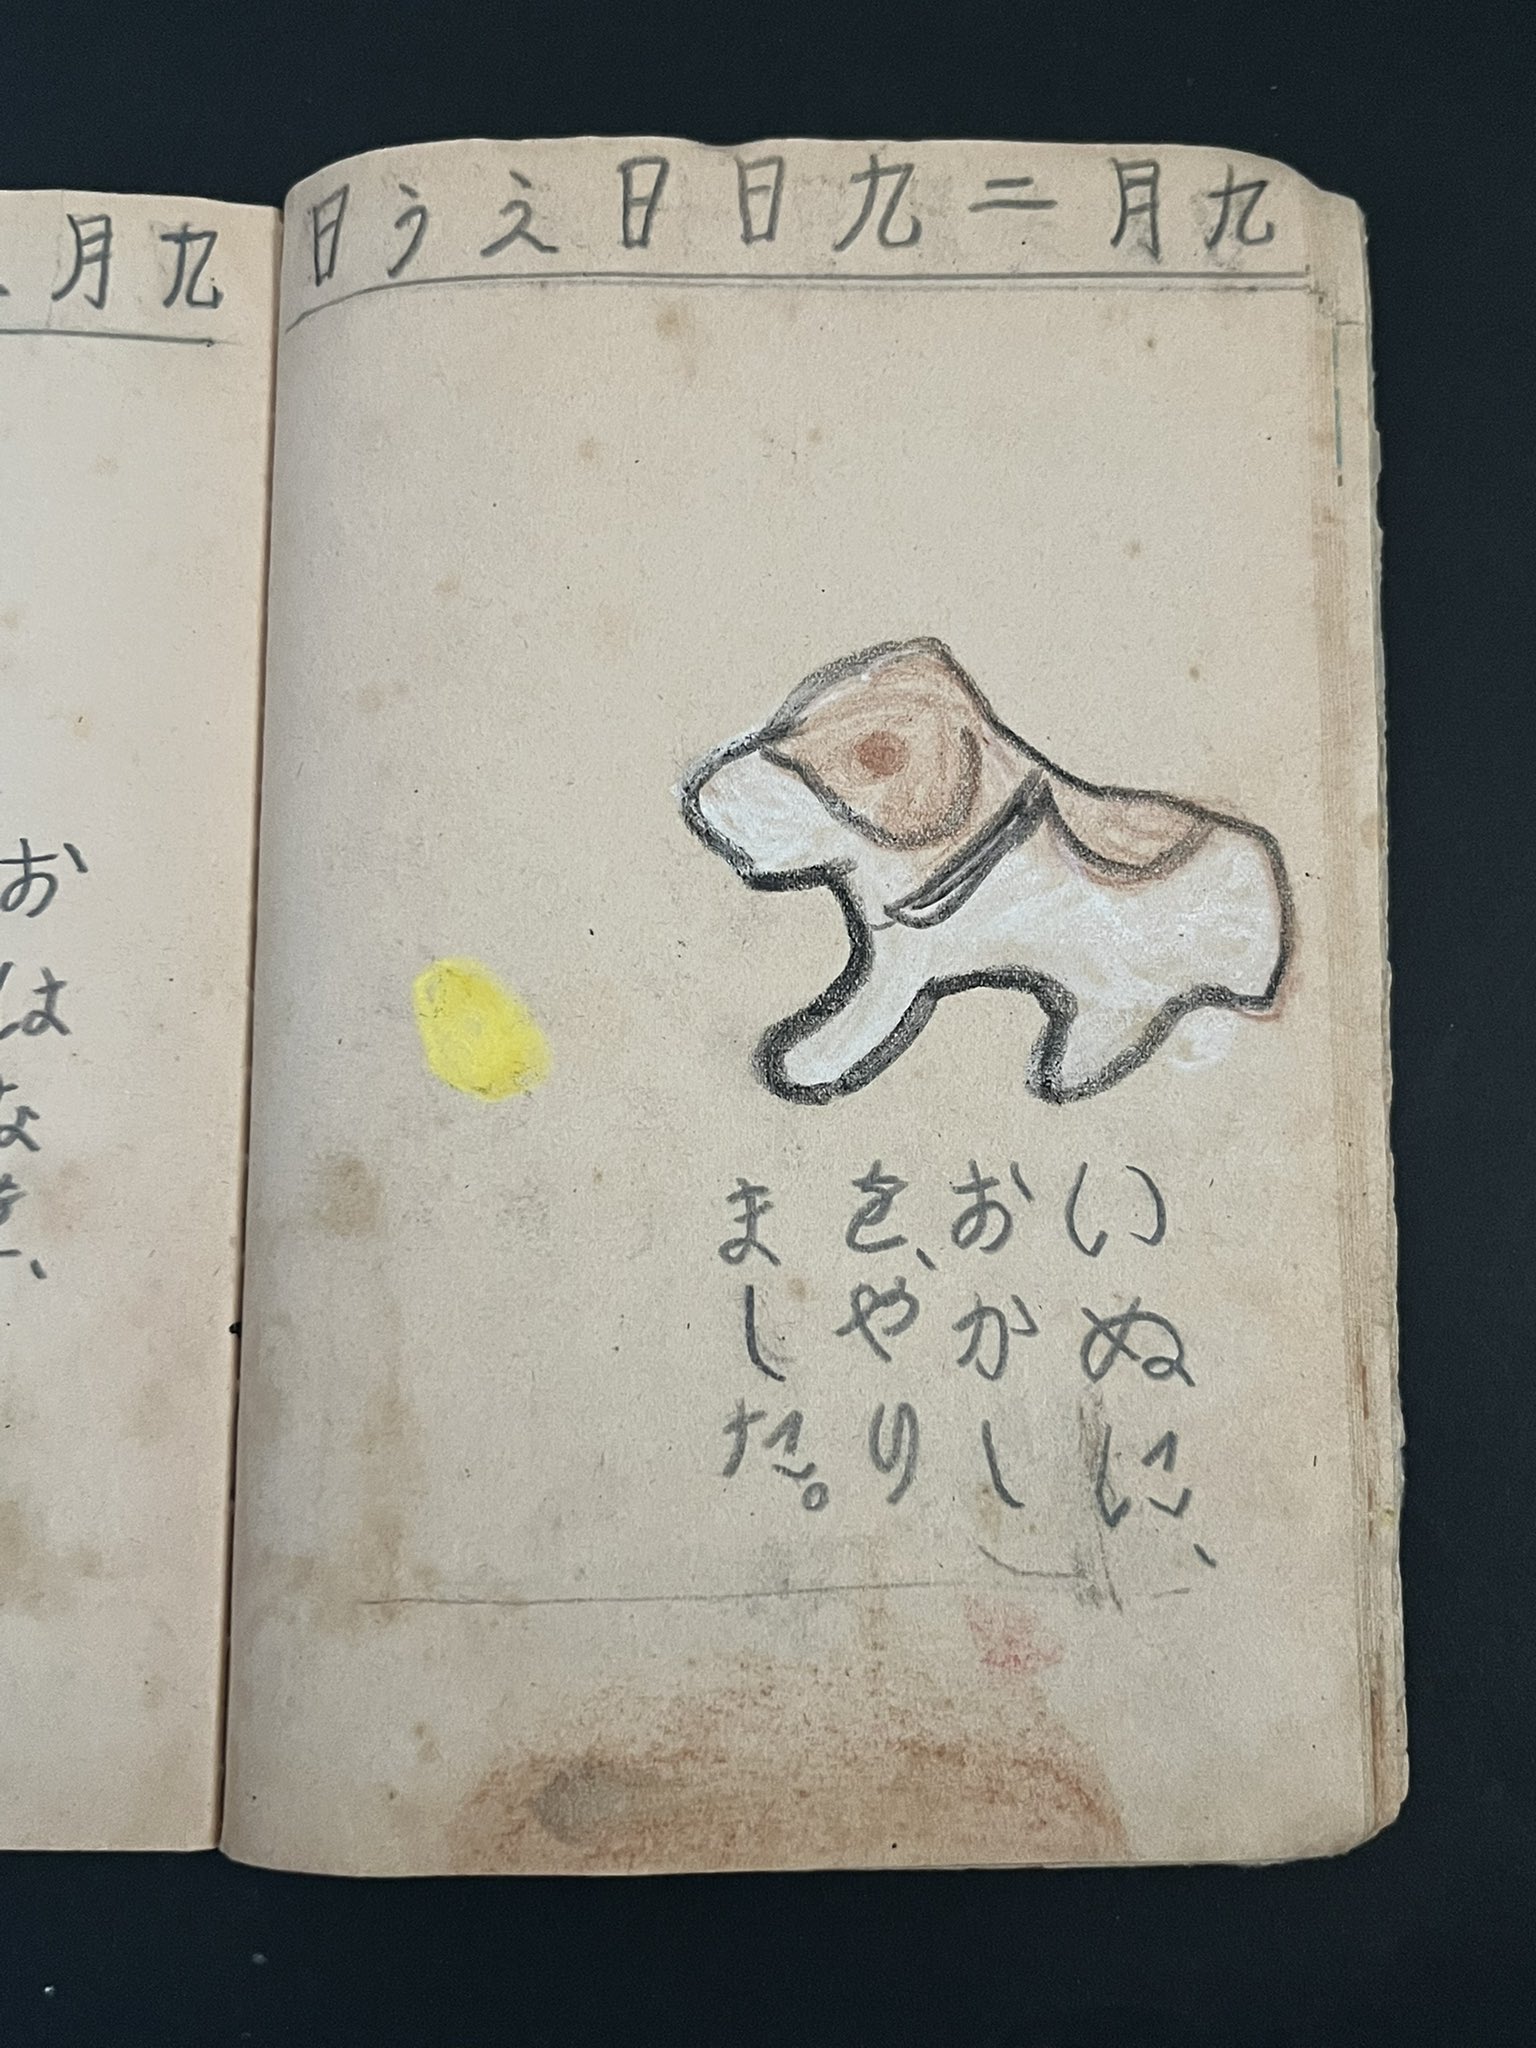 九月二九日日えう日
いぬに、
おかし
を、やり
ました。
九月
おはな